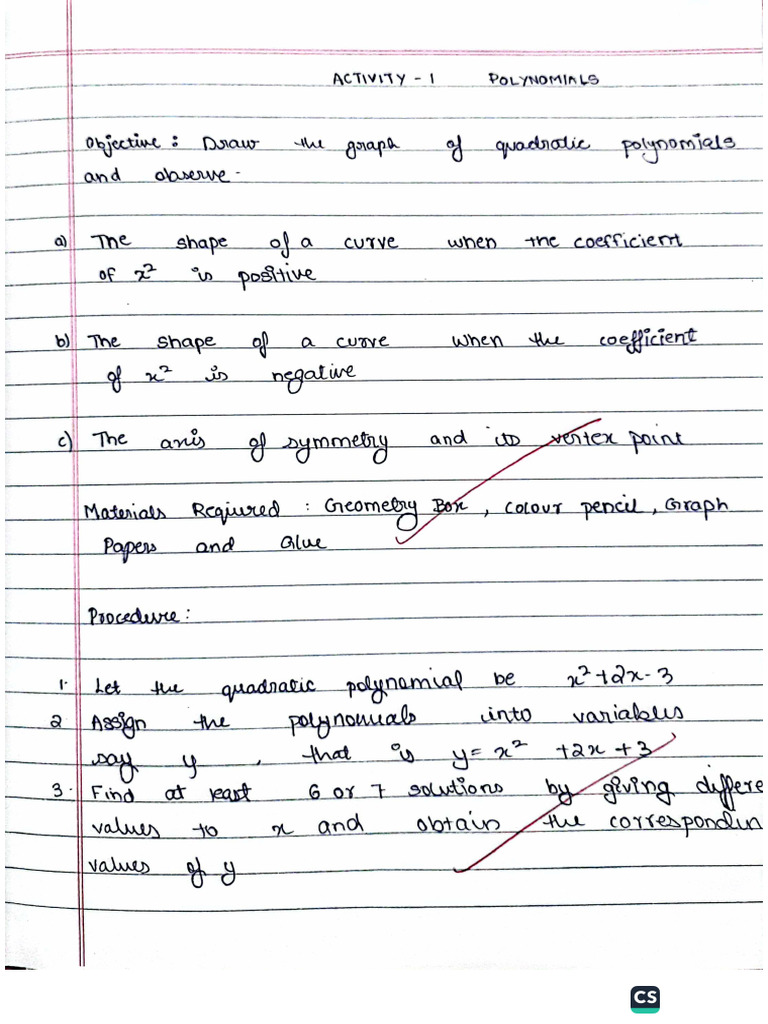 ACTIVITY - 1 POLYNOMIALS
Objective : Draw the graph of quadratic polynomials
and observe -
a) The shape of a curve when the coefficient
of x² is positive
b) The shape of a curve when the coefficient
of x² is negative
c) The axis of symmetry and its vertex point
Materials Reqiured : Geometry Box , Colour pencil , Graph
Papers and Glue
Procedure :
1. Let the quadratic polynomial be x²+2x-3
2 Assign the polynomials into variables
say y , that is y = x² +2x + 3
3. Find at least 6 or 7 solutions by giving differe
values to x and obtain the correspondin
values of y
CS